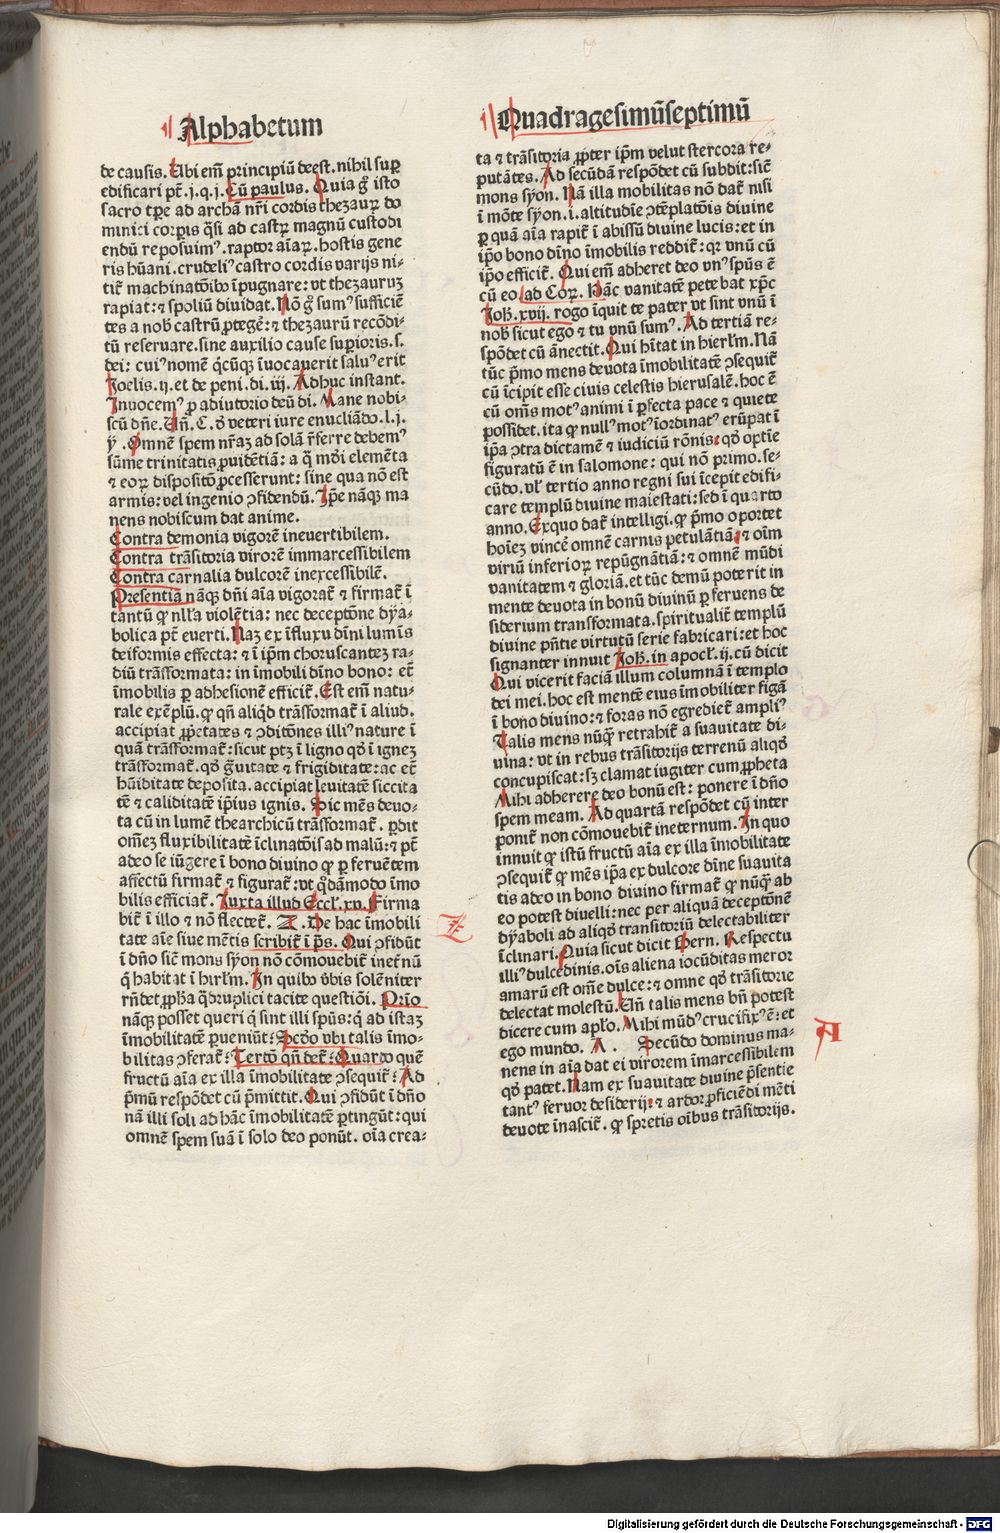 Alphabetum
de causis. Ubi em̄ principiū deest. nihil suꝑ
edificari pt̄. j. q. j. Cū paulus. Quia gͦ isto
sacro tꝑe ad archā nr̄i cordis thezauꝝ do
mini: i corꝑis q̄si ad castꝝ magnū custodi
endū reposuimꝰ. raptor aīaꝝ. hostis gene
ris hūani. crudelꝰ castro cordis varijs ni-
tit̄ machinatōibꝰ īpugnare: vt thezauruꝫ
rapiat: ⁊ spoliū diuidat. Nō gͦ sumꝰ sufficiē
tes a nob̄ castrū ꝓtegē: ⁊ thezaurū recōdi-
tū reseruare. sine auxilio cause suꝑioris. s.
dei: cuiꝰ nomē q̄cūqꝫ īuocauerit saluꝰ erit
Joelis. ij. et de peni. di. iij. Adhuc instant.
Inuocemꝰ ꝑ adiutorio deū di. Mane nobi-
scū dn̄e. Un̄. C. ḋ veteri iure enucliādo. l. j.
ÿ. Omnē spem nr̄aꝫ ad solā r̄ferre debemꝰ
sūme trinitatis ꝓuidētiā: a q̄ mōi elemēta
⁊ eoꝝ dispositō ꝓcesserunt: sine qua nō est
armis: vel ingenio ꝯfidendū. Ipē nāqꝫ ma
nens nobiscum dat anime.
Contra demonia vigorē inevertibilem.
Contra trāsitoria virorē immarcessibilem
Contra carnalia dulcorē inexcessibilē.
Presentiā nāqꝫ dn̄i aīa vigorat̄ ⁊ firmat̄ ī
tantū ꝙ nll̄a violētia: nec deceptōne dya-
bolica pt̄ euerti. Naꝫ ex īfluxu dīni lumīs
deiformis effecta: ⁊ ī ipm̄ choruscanteꝫ ra-
diū trāsformata: in īmobili dīno bono: et̄
īmobilis ꝑ adhesionē efficit̄. Est em̄ natu-
rale exēplū. ꝙ qn̄ aliqd trāsformat̄ ī aliud.
accipiat ꝓpetates ⁊ ꝯditōnes illiꝰ nature ī
quā trāsformat̄: sicut ptꝫ ī ligno qd̄ ī igneꝫ
trāsformat̄. qd̄ gͣuitate ⁊ frigiditate: ac et̄
hūiditate deposita. accipiat leuitatē siccita
tē ⁊ caliditatē ipiꝰ ignis. Sic mēs deuo-
ta cū in lumē thearchicū trāsformat̄. ꝑdit
om̄eꝫ fluxibilitatē īclinatōis ad malū: ⁊ pt̄
adeo se iūgere ī bono diuino ꝙ ꝑ feruētem
affectū firmat̄ ⁊ figurat̄: vt qdāmodo īmo
bilis efficiat̄. Juxta illud Eccl̄. xxij. Firma
bit̄ ī illo ⁊ nō flectet̄. Z. De hac īmobili
tate aīe siue mētis scribit̄ ī ps̄. Qui ꝯfidūt
ī dn̄o sic̄ mons syon nō cōmouebit̄ inet̄nū
q̄ habitat ī hirl̄m. In quibꝰ ṽbis solēniter
rn̄det ꝓph̄a q̄druplici tacite questiōi. Prīo
nāqꝫ posset queri q̄ sint illi spūs: q̄ ad istaꝫ
īmobilitatē ꝑueniūt: Scd̄o vbi talis īmo-
bilitas ꝯferat̄: Tertō qn̄ det̄: Quarto quē
fructū aīa ex illa īmobilitate ꝯsequit̄: Ad
pͥmū respōdet cū pͥmittit. Qui ꝯfidūt ī dn̄o
nā illi soli ad hāc īmobilitatē ꝑtingūt: qui
omnē spem suā ī solo deo ponūt. oīa crea-
Z
Quadragesimūseptimū
ta ⁊ trāsitoria ꝓpter ipm̄ velut stercora re-
putātes. Ad secūdā respōdet cū subdit: sic̄
mons syon. Nā illa mobilitas nō dat̄ nisi
ī mōte syon. i. altitudīe ꝯtēplatōis diuine
ꝑ quā aīa rapit̄ ī abissū diuine lucis: et in
ipo bono dīno īmobilis reddit̄: qꝛ vnū cū
ipo efficit̄. Qui em̄ adheret deo vnꝰ spūs ē
cū eo. ad Coꝝ. Hāc vanitatē pete bat xp̄c
Joh̄. xvij. rogo īquit te pater vt sint vnū ī
nob̄ sicut ego ⁊ tu vnū sumꝰ. Ad tertiā re-
spōdet cū ānectit. Qui hītat in hierl̄m. Nā
tūc pͥmo mens deuota īmobilitatē ꝯsequit̄
cū īcipit esse ciuis celestis hierusalē. hoc ē
cū om̄s motꝰ animi ī ꝑfecta pace ⁊ quiete
possidet. ita ꝙ nullꝰ motꝰ īordinatꝰ erūpat ī
ipā ꝯtra dictamē ⁊ iudiciū rōnis: qd̄ optīe
figuratū ē in salomone: qui nō primo. se-
cūdo. vl̄ tertio anno regni sui īcepit edifi-
care templū diuine maiestati: sed ī quarto
anno. Exquo dat̄ intelligi. ꝙ pͥmo oportet
hoīeꝫ vincē omnē carnis petulātiā: ⁊ oīm
viriū inferioꝝ repūgnātiā: ⁊ omnē mūdi
vanitatem ⁊ gloriā. et tūc demū poterit in
mente deuota in bonū diuinū ꝑ feruens de
siderium transformata. spiritualit̄ templū
diuine pn̄tie virtutū serie fabricari: et hoc
signanter innuit Joh̄. in apocl̄. ij. cū dicit
Qui vicerit faciā illum columnā ī templo
dei mei. hoc est mentē eius īmobiliter figā
ī bono diuino: ⁊ foras nō egrediet̄ ampliꝰ
Talis mens nūqͣ retrahit̄ a suauitate di-
uina: vt in rebus trāsitorijs terrenū aliqd̄
concupiscat: sꝫ clamat iugiter cum ꝓpheta
Mihi adherere deo bonū est: ponere ī dn̄o
spem meam. Ad quartā respōdet cū inter
ponit̄ non cōmouebit̄ ineternum. In quo
innuit ꝙ istū fructū aīa ex illa īmobilitate
ꝯsequit̄ ꝙ mēs ipā ex dulcore dīne suauita
tis adeo in bono diuino firmat̄ ꝙ nūqͣ ab
eo potest diuelli: nec per aliquā deceptōnē
dyaboli ad aliqd̄ transitoriū delectabiliter
īclinari. Quia sicut dicit Bern. Respectu
illiꝰ dulcedinis. oīs aliena iocūditas meror
amarū est om̄e dulce: ⁊ omne qd̄ trāsitorie
delectat molestū. Un̄ talis mens bn̄ potest
dicere cum apl̄o. Mihi mūdꝰ crucifixꝰ ē: et
ego mundo. A. Secūdo dominus ma-
nens in aīa dat ei virorem īmarcessibilem
qd̄ patet. Nam ex suauitate diuine p̄sentie
tantꝰ feruor desiderij: ⁊ ardor ꝓficiēdi mēti
deuote īnascit̄. ꝙ spretis oībus trāsitorijs.
A
Digitalisierung gefördert durch die Deutsche Forschungsgemeinschaft - DFG